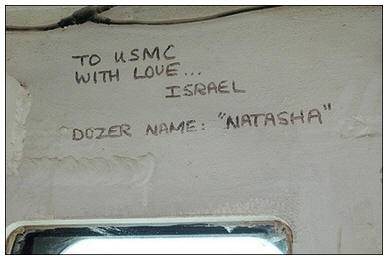 TO USMC
WITH LOVE...
ISRAEL
DOZER NAME: "NATASHA"